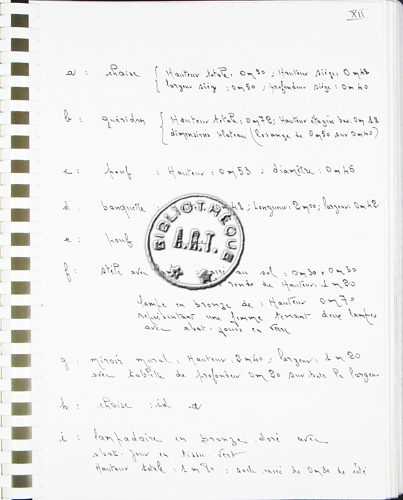 XII
a : chaise { Hauteur totale : 0m90 ; Hauteur siège : 0m48
largeur siège : 0m50 ; profondeur siège : 0m40
b : guéridon { Hauteur totale : 0m78 ; Hauteur étagère bas : 0m18
dimensions plateau (losange de 0m50 sur 0m40)
c : pouf : Hauteur : 0m53 ; diamètre : 0m45
d : banquette : longueur : 2m00 ; largeur : 0m42
e : pouf
BIBLIOTHÈQUE
A.R.T.
f : stèle avec au sol : 0m30 x 0m30
de Hauteur : 1m80
lampe en bronze de : Hauteur 0m70
représentant une femme tenant deux lampes
avec abat-jours en verre
g : miroir mural : Hauteur : 2m40 ; largeur : 1m80
avec tablette de profondeur 0m20 sur toute la largeur
h : chaise : id a
i : lampadaire en bronze doré avec
abat-jour en tissu vert
Hauteur totale : : socle carré de 0m30 de côté